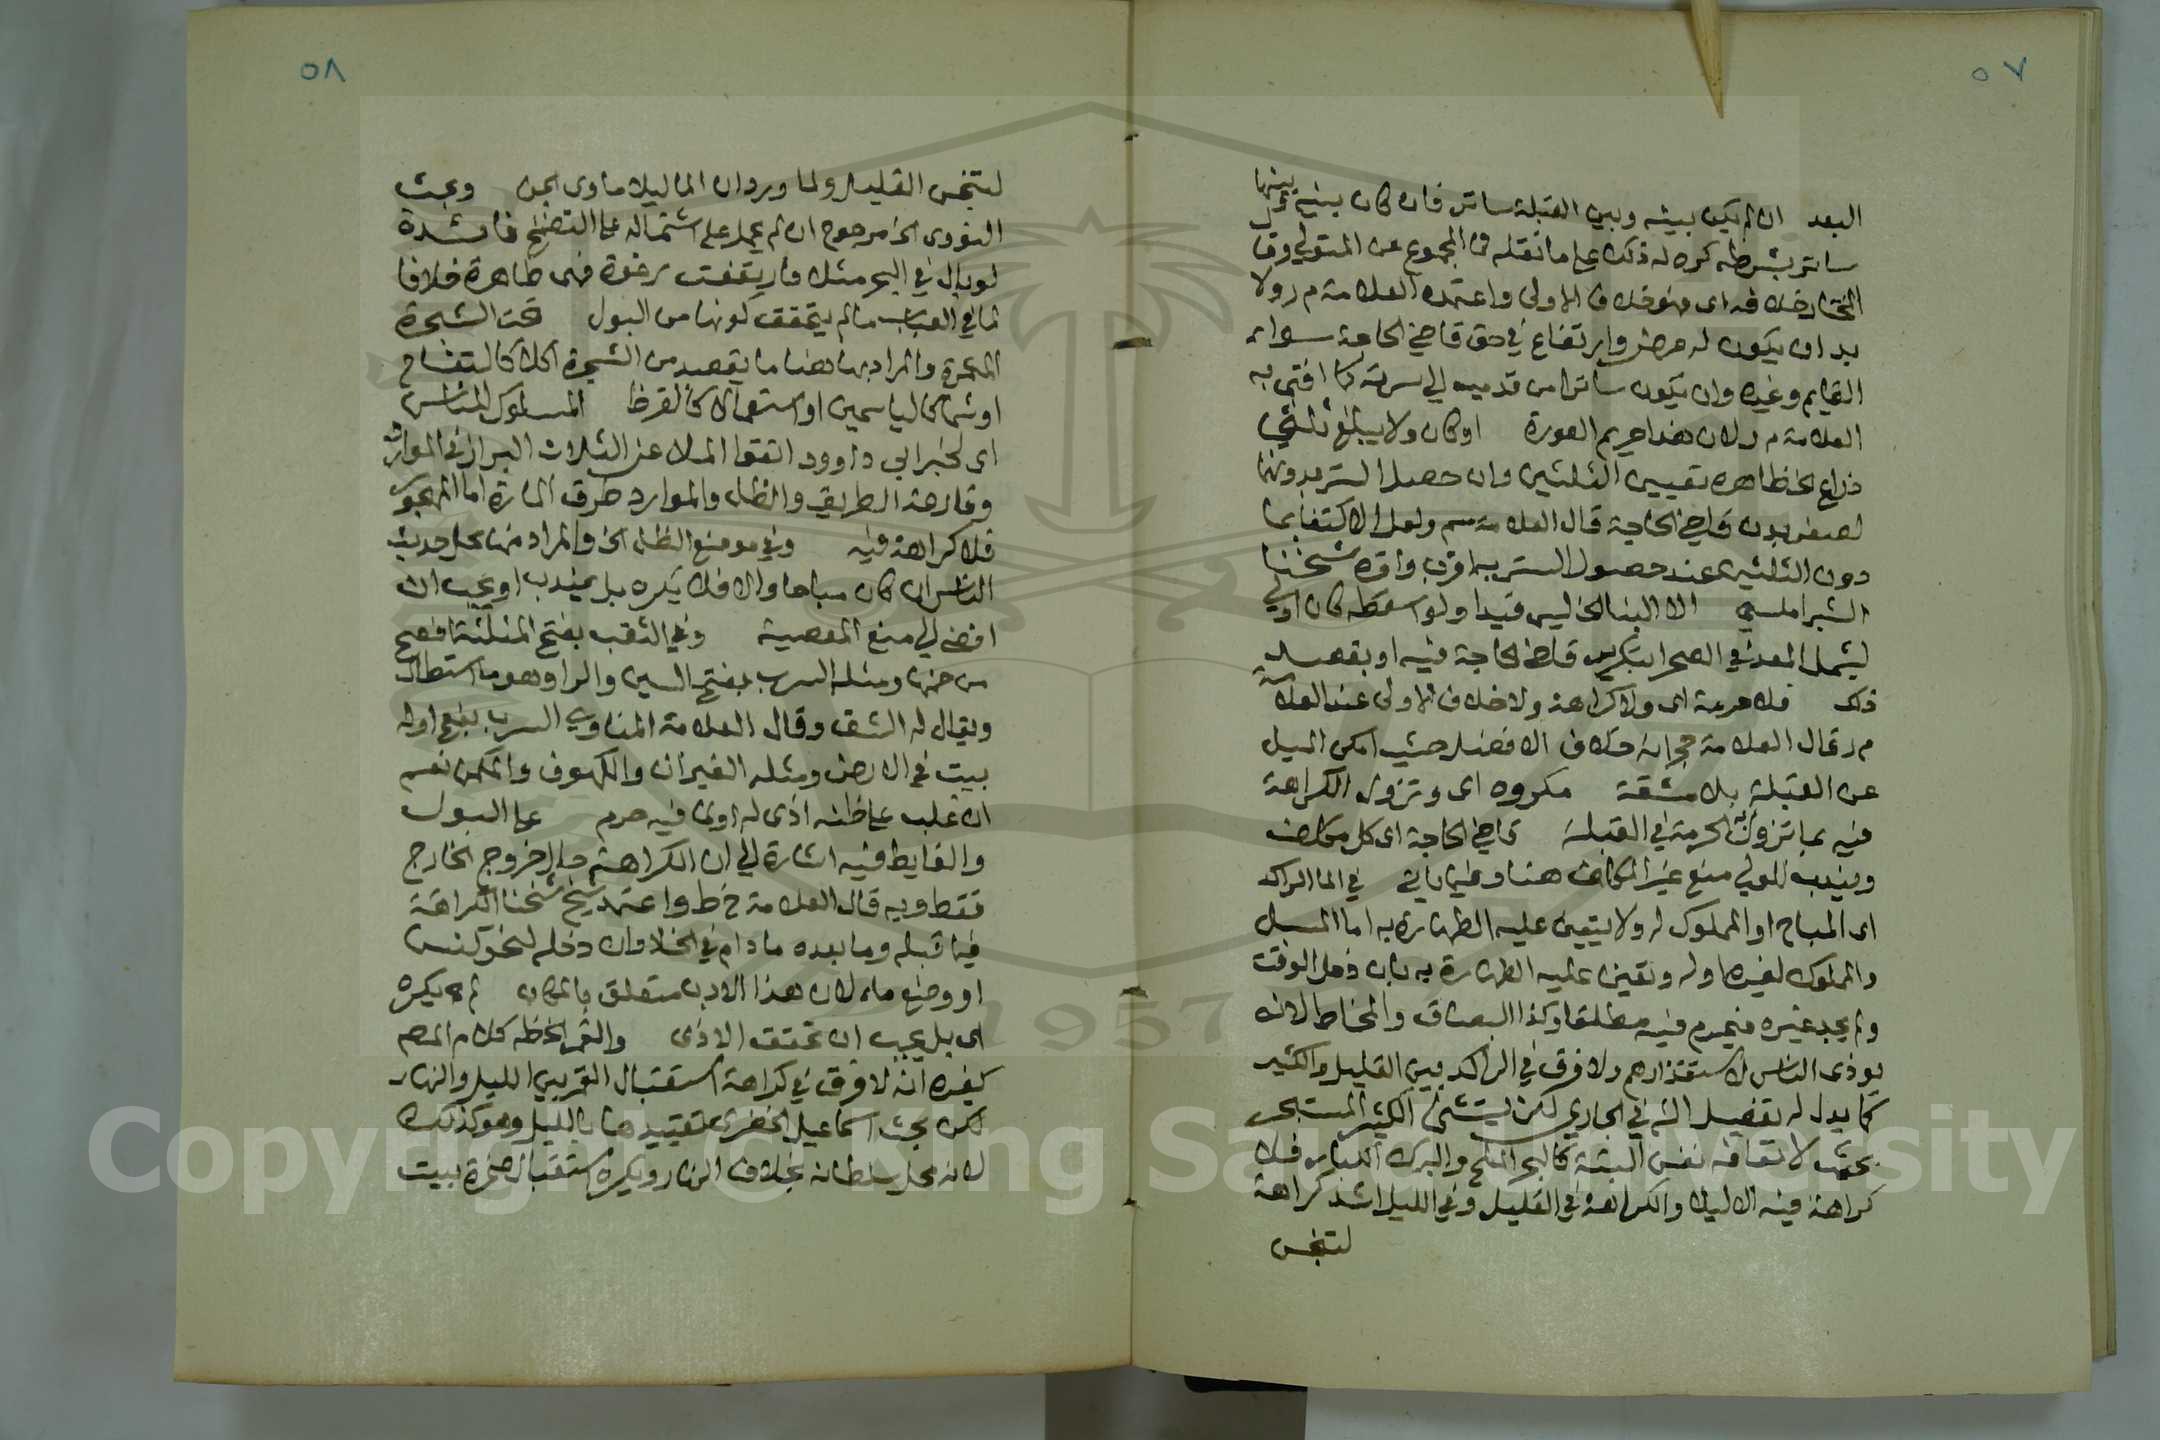 ٥٧
البعد ان لم يكن بينه وبين القبلة ساتر فان كان بينه وبينها
ساتر بشرطه كره له ذلك على ما نقله في المجموع عن المتولي وقال
المختار خلافه اى فهو خلاف الاولى واعتمده العلامة م ر ولا
بد ان يكون له عرض وارتفاع في حق قاضي الحاجة سواء
القايم وغيره وان يكون ساترا من قدميه الى سرته كما افتى به
العلامة م ر لان هذا حريم العورة او كان ولا يبلغ ثلثي
ذراع الخ ظاهره تعيين الثلثين وان حصل الستر بدونهما
لصغر بدن قاضي الحاجة قال العلامة سم ولعل الاكتفا بما
دون الثلثين عند حصول الستر به اقرب واقره شيخنا
الشبراملسي الا البنا الخ ليس قيدا ولو اسقطه كان اولى
ليشمل المعد في الصحرا بتكرير قاضي الحاجة فيه او بقصد
ذلك فلا حرمة اى ولا كراهة ولا خلاف الاولى عند العلامة
م ر وقال العلامة حج انه خلاف الافضل حيث امكن الميل
عن القبلة بلا مشقة مكروه اى وتزول الكراهة
فيه بما تزول به الحرمة في القبلة قاضي الحاجة اى كل مكلف
ويندب للولي منع غير المكلف هنا وفيما ياتي في الما الراكد
اى المباح او المملوك له ولا يتعين عليه الطهارة به اما المسبل
والمملوك لغيره او له وتعين عليه الطهارة به بان دخل الوقت
ولم يجد غيره فيحرم فيه مطلقا وكذا البصاق والمخاط لانه
يوذى الناس لاستقذارهم ولا فرق في الراكد بين القليل والكثير
كما يدل له تفصيل الش في الجاري لكن يستثنى الكثير المستبحر
بحيث لا تعافه نفس البتة كالبحر الملح والبرك الكبار فلا
كراهة فيه الا ليلا والكراهة في القليل وفي الليل اشد كراهة
لتنجس
٥٨
لتنجس القليل ولما ورد ان الما ليلا ماوى الجن وبحث
النووى الخ مرجوح ان لم يحمل على اشتماله على التضمخ فايدة
لو بال في البحر مثلا فارتفعت رغوة فهى طاهرة خلافا
لما في العباب ما لم يتحقق كونها من البول تحت الشجرة
المثمرة والمراد بها هنا ما يقصد من الشجرة اكلا كالتفاح
او شما كالياسمين او استعمالا كالقرظ المسلوك للناس
اى لخبر ابي داوود اتقوا الملاعن الثلاث البراز في الموارد
وقارعة الطريق والظل والموارد طرق المارة اما المهجور
فلا كراهة فيه وفي موضع الظل الخ والمراد منه محل حديث
الناس ان كان مباحا والا فلا يكره بل يندب او يجب ان
افضى الى منع المعصية وفي الثقب بفتح المثلثة افصح
من ضمها ومثله السرب بفتح السين والرا وهو ما استطال
ويقال له الشق وقال العلامة المناوي السرب بفتح اوله
بيت في الارض ومثله الغيران والكهوف والمكمن نعم
ان غلب على ظنه اذى له او لما فيه حرم على البول
والغايط فيه اشارة الى ان الكراهة حال خروج الخارج
فقط وبه قال العلامة خ ط واعتمد شيخ شيخنا الكراهة
فيما قبله وما بعده ما دام في الخلا وان دخله لنحو كنس
او وضع ماء لان هذا الادب متعلق بالمكان لم يكره
اى بل يجب ان تحقق الاذى والقمر الخ ظه كلام المص
كغيره انه لا فرق في كراهة استقبال القمر بين الليل والنهار
لكن بحث اسماعيل الحضرمى تقييدها بالليل وهو كذلك
لانه محل سلطانه بخلاف النهار ويكره استقبال صخرة بيت